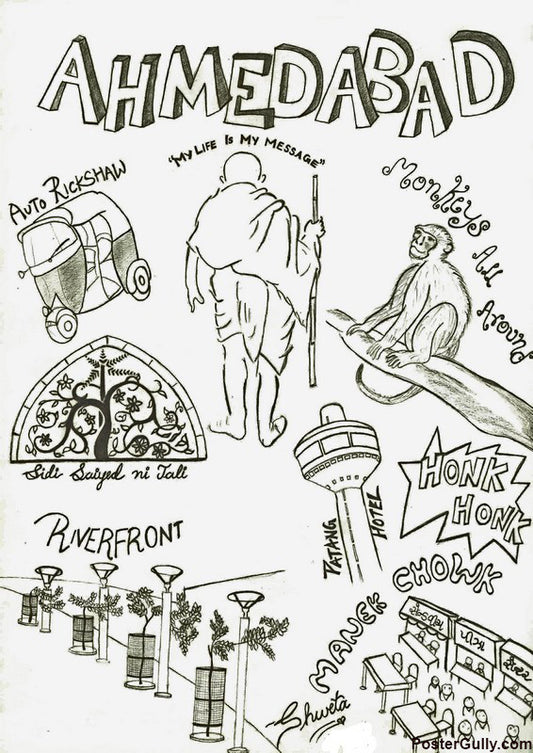 AHMEDABAD
"MY LIFE IS MY MESSAGE"
AUTO RICKSHAW
MonKeys All Around
Sidi Saiyed ni Jali
HONK
HONK
PATANG HOTEL
RIVERFRONT
MANEK CHOWK
Shweta
PosterGully.com